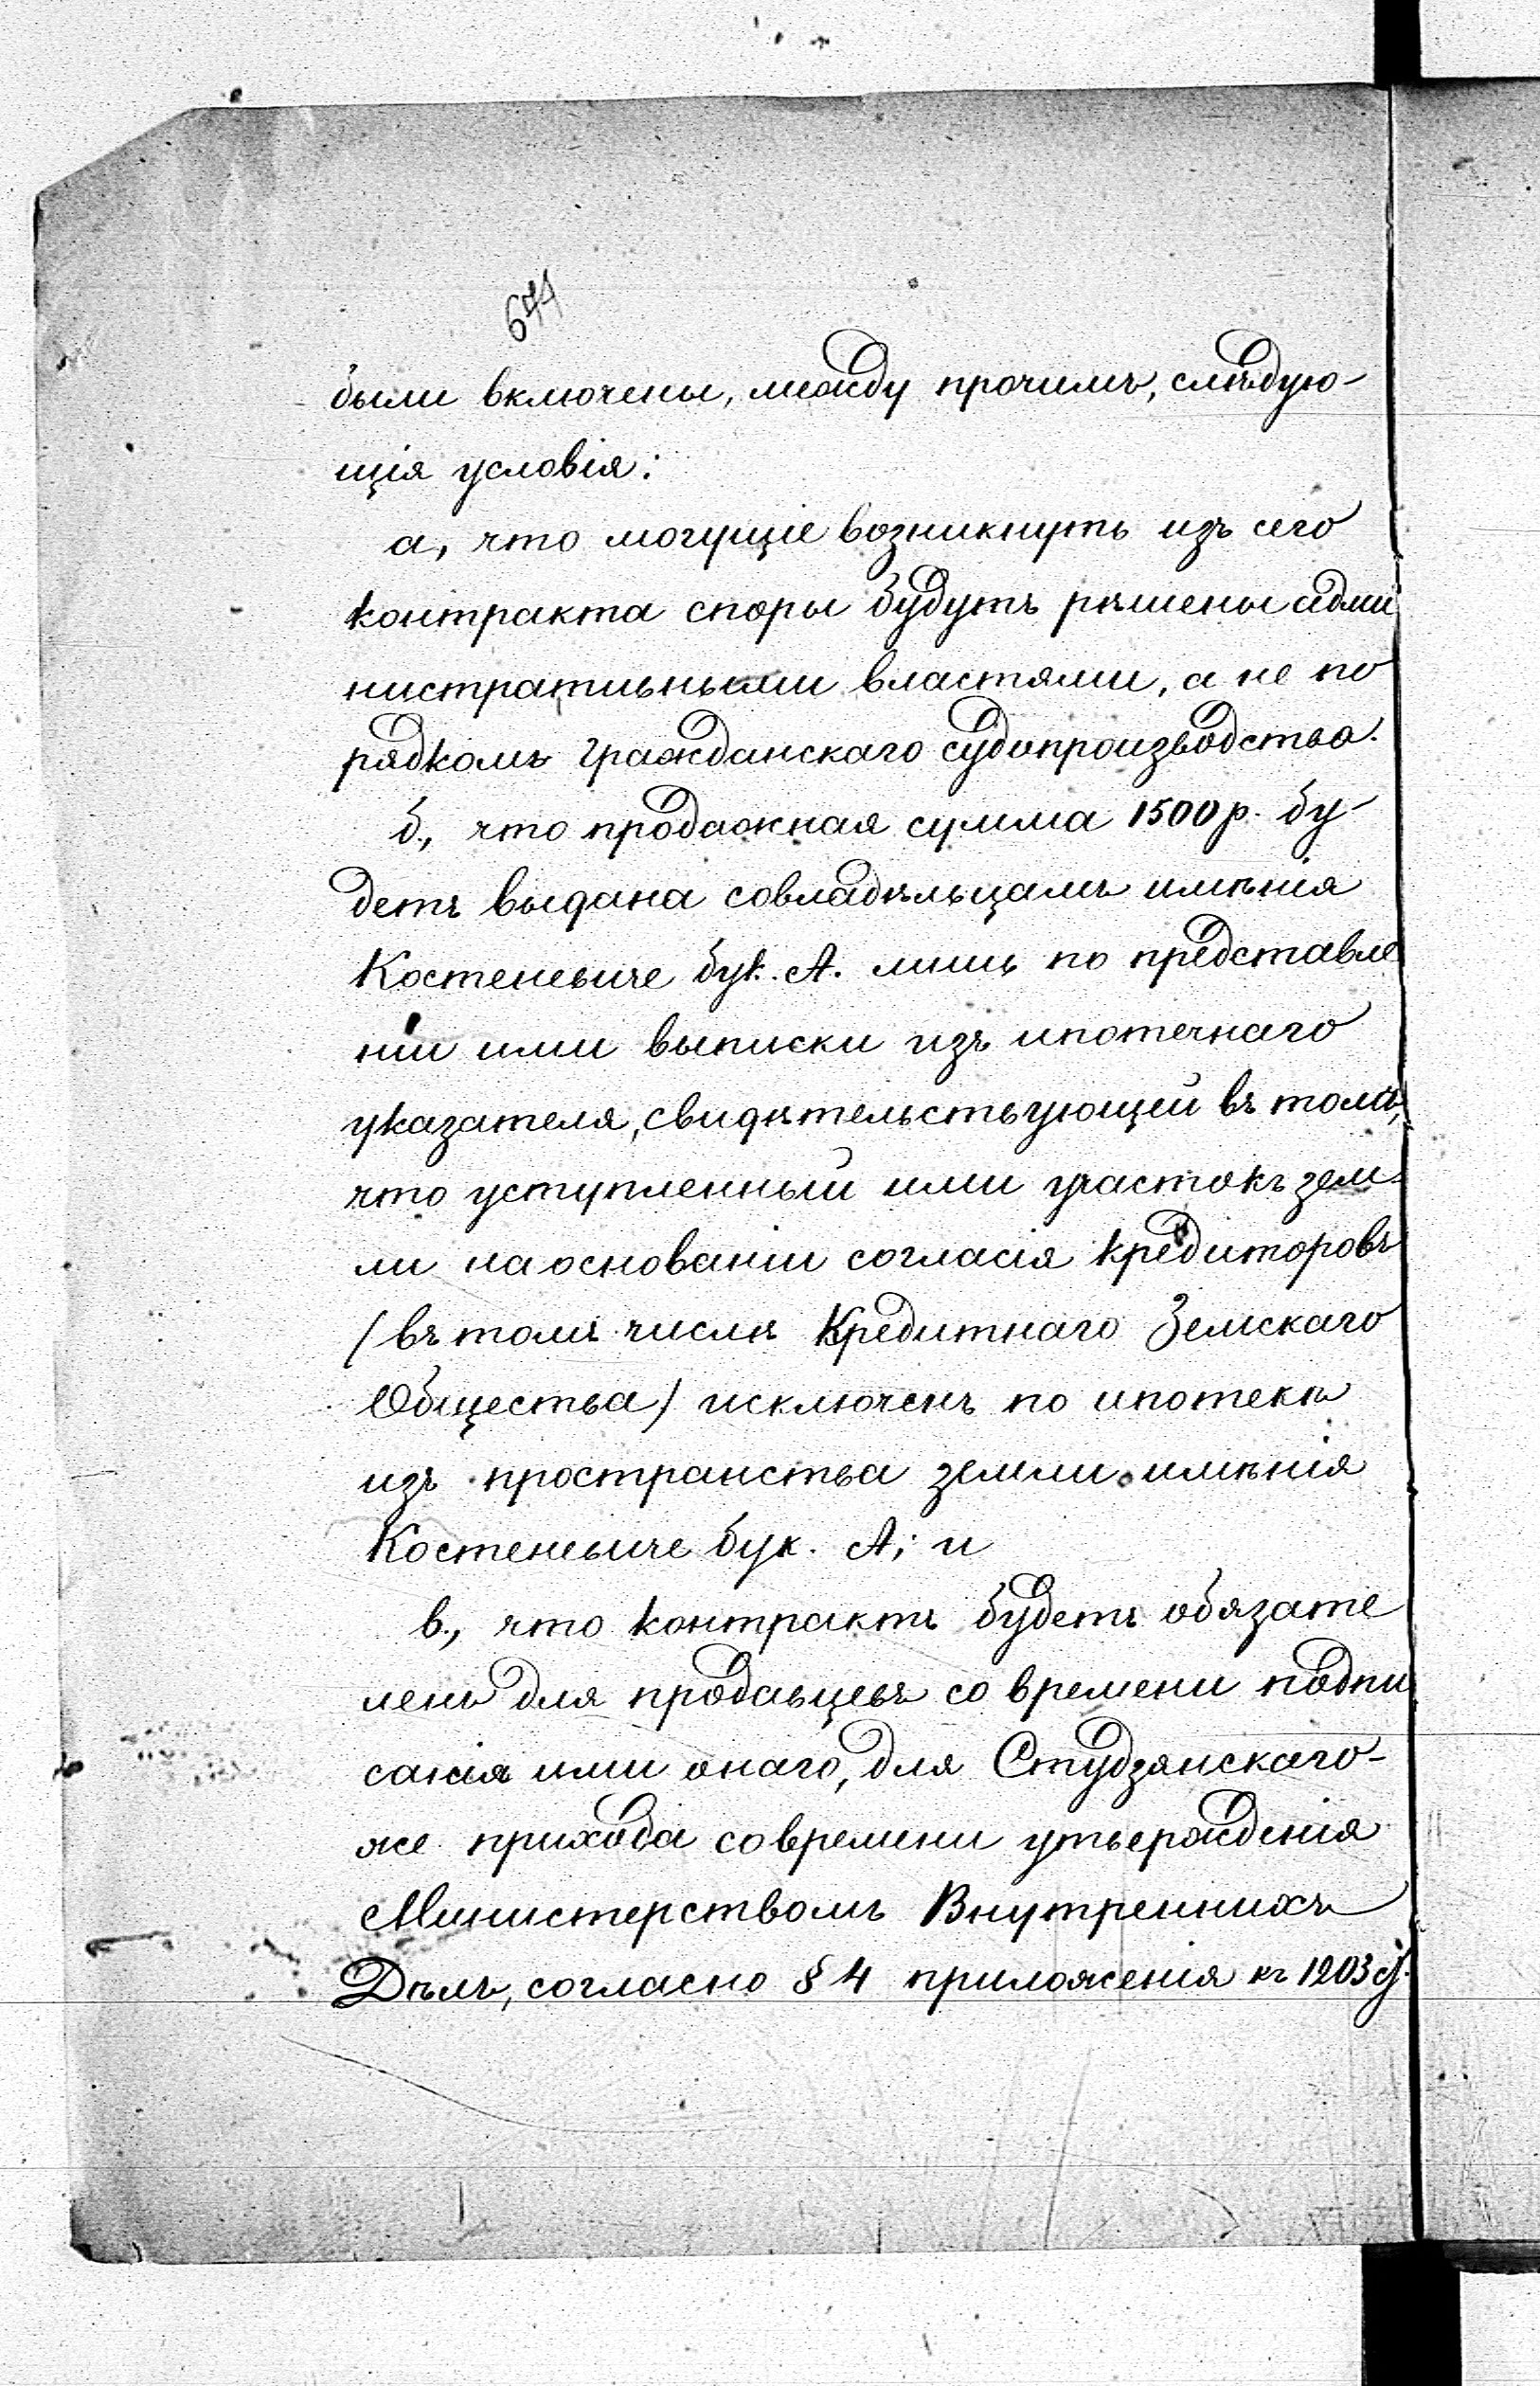 были включены, между прочимъ, слѣдую-
щія условія:
а, что могущіе возникнуть изъ сего
контракта споры будутъ рѣшены адми
нистративными властями, а не по
рядкомъ гражданскаго судопроизводства.
б., что продажная сумма 1500 р. бу-
детъ выдана совладѣльцамъ имѣнія
Костеневиче бук. А. лишь по представле
ніи ими выписки изъ ипотечнаго
указателя, свидѣтельствующей въ томъ,
что уступленный ими участокъ зем-
ли на основаніи согласія кредиторовъ
/въ томъ числѣ Кредитнаго Земскаго
Общества/ исключенъ по ипотекѣ
изъ пространства земли имѣнія
Костеневиче бук. А; и
в., что контрактъ будетъ обязате
ленъ для продавцевъ со времени подпи
санія ими онаго, для Студзянскаго-
же прихода со времени утвержденія
Министерствомъ Внутреннихъ
Дѣлъ, согласно § 4 приложенія къ 1203 ст.